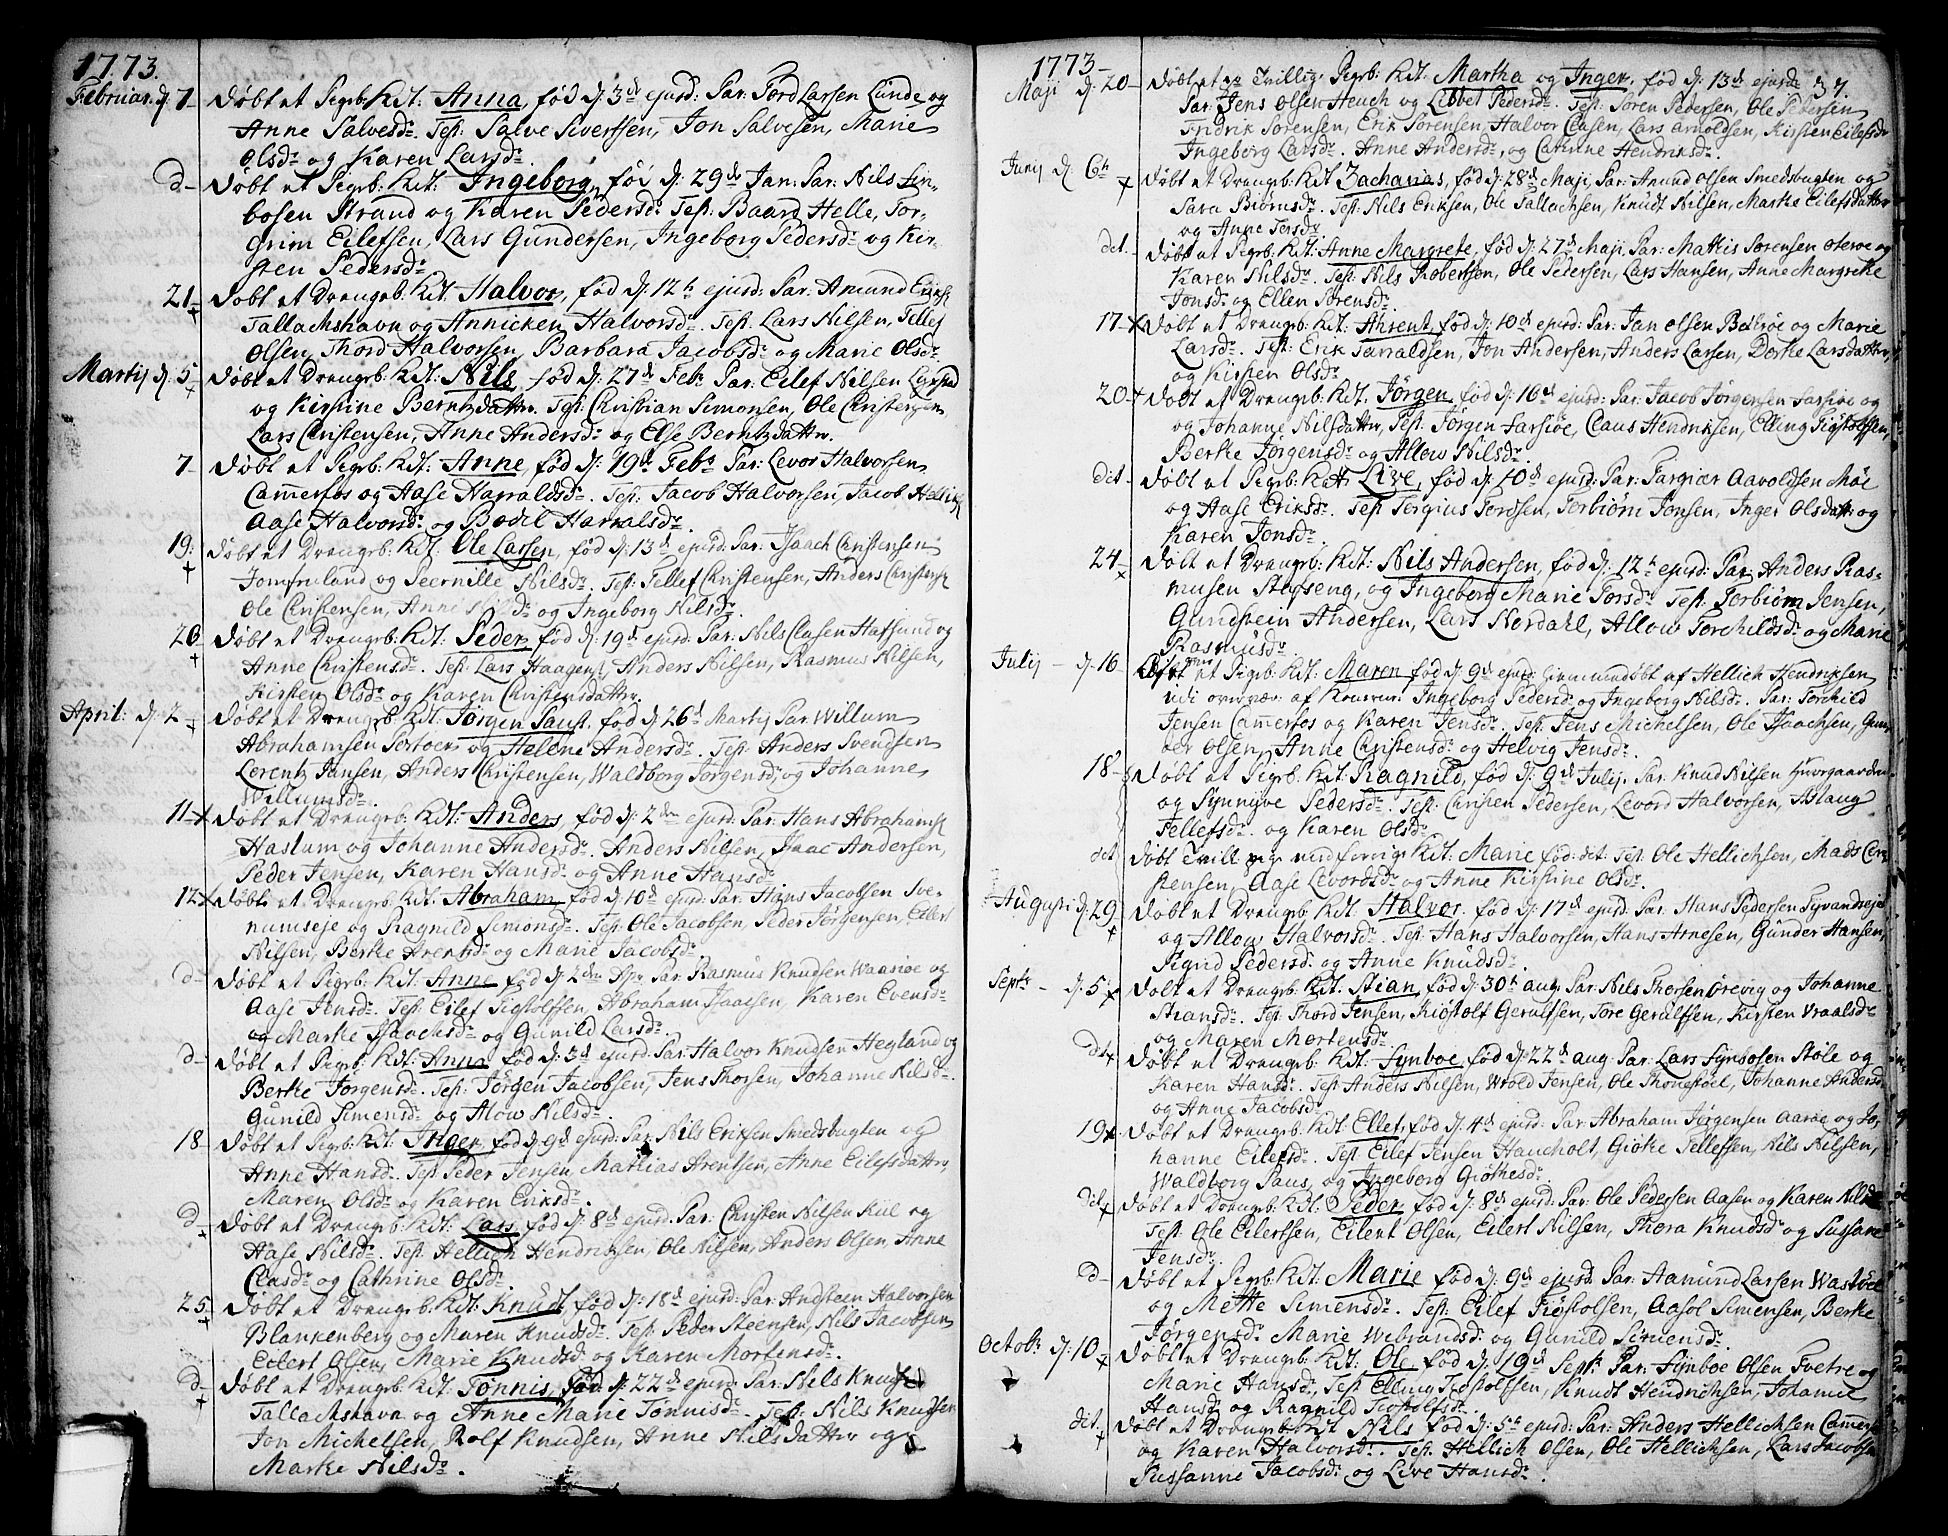 1773.
Februar. d. 7 Døbt et Pigeb: Kdt: Anna, fød d: 3de ejusd: Par: Tord Larsen Lunde og
Anne Salvesdr. Test: Salve Sivertsen, Jon Salvesen, Marie
Olsdr og Karen Larsdr.
d– Døbt et Pigeb: Kdt: Ingeborg, fød d: 29de Jan: Par: Nils Sin-
bosen Strand og Karen Pedersdr Test: Baard Helle, Tor-
grim Eilefsen, Lars Gundersen, Ingeborg Pedersdr og Kir-
sten Pedersdr
21– Døbt et Drengeb: Kdt: Halvor, fød d: 12te ejusd: Par: Amund Eriks:
Tallachshavn og Annicken Halvorsdr. Test: Lars Nilsen, Tellef
Olsen, Thord Halvorsen, Barbara Jacobsdr og Marie Olsdr
Martij d. 5 Døbt et Drengeb: Kdt: Nils, fød d: 27de Febr: Par: Eilef Nilsen
og Kirstine Berntzdattr. Test: Christian Simonsen, Ole Christensen
Lars Christensen, Anne Andersdr og Else Berntzdattr.
7– Døbt et Pigeb: Kdt: Anne, fød d: 19de Febr Par: Levor Halvorsen
Camerfos og Aase Harraldsdr. Test: Jacob Halvorsen, Jacob
Aase Halvorsdr og Bodil Harralsdr.
19: Døbt et Drengeb: Kdt: Ole Larsen, fød d: 13de ejusd: Par: Isaach Christensen
Jomfruland og Peernille Nilsdr. Test: Tellef Christensen, Anders Christens:
Ole Christensen, Anne dr og Ingeborg Nilsdr.
26 Døbt et Drengeb: Kdt: Peder, fød d: 19de ejusd: Par: Nils Clasen Hafsund og
Anne Christensdr. Test: Lars Haagens:, Anders Nilsen, Rasmus Nilsen,
Kirsten Olsdr og Karen Christensdattr.
April: d. 2– Døbt et Drengeb: Kdt: Jørgen Paust, fød d: 26d Martij Par: Willum
Abrahamsen og Helene Andersdr. Test: Anders Svendsen
Lorentz Jansen, Anders Christensen, Waldborg Jørgensdr, og Johanne
Willumsdr.
11– Døbt et Drengeb: Kdt: Anders, fød d: 2den ejusd: Par: Hans Abrahams:
Haslum og Johanne Andersdr. Anders Nilsen, Isaac Andersen,
Peder Jensen, Karen Hansdr og Anne Hansdr
12 Døbt et Drengeb: Kdt: Abraham, fød d: 10d ejusd: Par: Hans Jacobsen Sve-
numseje og Ragnild Simonsdr. Test: Ole Jacobsen, Peder Jørgensen, Eilert
Nilsen, Berthe Arentsdr og Marie Jacobsdr.
d– Døbt et Pigeb: Kdt: Anne fød d: 2den Apr Par: Rasmus Knudsen Waasiøe og
Aase Jensdr. Test: Eilef Siostolfsen, Abraham Isaacsen, Karen Evensdr
og Marthe Isaachsdr og Gunild Larsdr.
d– Døbt et Pigeb: Kdt: Anna fød d: 3d ejusd: Par: Halvor Knudsen Hegland og
Berthe Jørgensdr. Test: Jørgen Jacobsen, Jens Thorsen, Johanne Nilsdr.
Gunild Simensdr og Alow Nilsdr.
18 Døbt et Pigeb: Kdt: Inger, fød d: 9d ejusd: Par: Nils Eriksen Smedsbugten og
Anne Hansdr. Test: Peder Jensen, Mathias Arentsen, Anne Eilefsdattr,
Maren Olsdr og Karen Eriksdr.
d– Døbt et Drengeb: Kdt: Lars, fød d: 8d ejusd: Par: Christen Nilsen Kiil og
Aase Nilsdr. Test: Hellich Hendriksen, Ole Nilsen, Anders Olsen, Anne
Clasdr og Cathrine Olsdr.
25– Døbt et Drengeb: Kdt: Knudt, fød d: 18d ejusd: Par: Andsteen Halvorsen
Blankenberg og Maren Knudsdr. Test: Peder Steensen, Nils Jacobsen
Eilert Olsen, Marie Knudsdr og Karen Mortensdr.
d– Døbt et Drengeb: Kdt: Tønnis, fød d: 22de ejusd: Par: Nils Knuds:
Tallachshavn og Anne Marie Tønnisdr. Test: Nils Knudsen
Jon Michelsen, Rolf Knudsen, Anne Nilsdattr og
Marthe Nilsdr.
1773–
37.
Maji d. 20– Døbt et Tvilling Pigeb: Kdt: Martha og Inger, fød d: 13de ejusd:
Par: Jens Olsen Heuch og Libbet Pedersdr. Test: Søren Pedersen, Ole Pedersen
Fridrik Sørensen, Erik Sørensen, Halvor Clasen, Lars Arnoldsen, Kirsten Eilefsdr
Ingeborg Larsdr. Anne Andersdr, og Cathrine Hendriksdr.
Junij d. 6te Døbt et Drengeb: Kdt Zacharias, fød d: 28de Maji, Par: Anund Olsen Smedsbugten og
Sara Biørnsdr. Test: Nils Eriksen, Ole Tallachsen, Knudt Nilsen, Marthe Eilefsdattr
og Anne Torsdr
det– Døbt et Pigeb: Kdt: Anne Margrete, fød d: 27de Maji Par: Mathis Sørensen Oterøe og
Karen Nilsdr. Test: Nils Robertsen, Ole Pedersen, Lars Hansen, Anne Margrethe
Jonsdr og Ellen Sørensdr.
17– Døbt et Drengeb: Kdt: Ahrent, fød d: 10de ejusd: Par: Jan Olsen Bedrøe og Marie
Larsdr. Test: Erik Tarraldsen, Jon Andersen, Anders Larsen, Dorthe Larsdattr,
og Kirsten Olsdr
20– Døbt et Drengeb: Kdt: Jørgen fød d: 16de ejusd: Par: Jacob Jørgensen Farsiøe og
og Johanne Nilsdattr, Test: Jørgen Farsiøe, Claus Hendriksen, Elling Siøstolfsen,
Berthe Jørgensdr og Allow Nilsdr.
dit– Døbt et Pigeb: Kdt: Live, fød d: 10de ejusd: Par: Targier Aavoldsen Møe
og Aase Eriksdr. Test Tergius Tordsen, Torbiørn Jensen, Inger Olsdattr og
Karen Jonsdr.
24– Døbt et Drengeb: Kdt: Nils Andersen, fød d: 12te ejusd: Par: Anders Ras-
musen Stafseng, og Ingeborg Marie Torsdr Test: Torbiørn Jensen,
Gundstein Andersen, Lars Nordahl, Allow Torchildsdr og Marie
Rasmusdr.
Julij – d. 16 et Pigeb: Kdt: Maren fød d: 9d ejusd: hiemmedøbt af Hellich Hendriksen
udi overvær af Ingeborg Pedersdr og Ingeborg Nilsdr. Par: Torchild
Jensen Camerfos og Karen Jensdr. Test: Jens Michelsen, Ole Isaachsen, Gun-
der Olsen, Anne Christensdr og Helvig Jensdr.
18– Døbt et Pigeb: Kdt: Ragnild, fød d: 9de Julij. Par: Knud Nilsen
og Synnyve Pedersdr. Test: Christen Pedersen, Levord Halvorsen, Aslaug
Tellefsdr og Karen Olsdr
det Døbt Tvilling med forrige Kdt: Marie fød: det: Test: Ole Hellichsen, Mads Chri-
stensen, Aase Levordsdr og Anne Kirstine Olsdr.
Augusti d. 29 Døbt et Drengeb: Kdt: Halvor. fød d: 17de ejusd: Par: Hans Pedersen
og Allow Halvorsdr. Test: Hans Halvorsen, Hans Arnesen, Gunder Hansen,
Sigrid Pedersdr og Anne Knudsdr.
Septr – d. 5 Døbt et Drengeb: Kdt: Stian, fød d: 30te aug. Par: Nils Thorsen Ørevig og Johanne
Stiansdr. Test: Thord Jensen, Kiøstolf Gerulfsen, Tore Gerulfsen, Kirsten Vraalsdr
og Maren Mortensdr.
dt Døbt et Drengeb: Kdt: Synboe fød d: 22de aug: Par: Lars Synbosen Støle og
Karen Hansdr. Test Anders Nilsen, Wrold Jensen, Ole Thonestøel, Johanne Andersdr
og Anne Jacobsdr.
19 Døbt et Drengeb: Kdt. Ellef, fød d: 4de ejusd: Par: Abraham Jørgensen Aarøe og Jo-
hanne Eilefsdr. Test: Eilef Jensen Haucholt, Giøthe Tellefsen, Nils Nilsen,
Waldborg Paus, og Ingeborg Giøthesdr.
dit Døbt et Drengeb: Kdt: Peder fød d: 8de ejusd: Par: Ole Pedersen Aasen og Karen Nilsdr
Test: Ole Eilertsen, Eilert Olsen, Eilert Nilsen, Thora Knudsdr og Sussane
Jensdr.
d– Døbt et Pigeb: Kdt: Marie fød d: 9de ejusd: Par: Aamund Larsen
og Mette Simensdr. Test: Eilef Siøstolsen, Aasol Simensen, Berthe
Jørgensdr Marie Webrandsdr og Gunild Simensdr.
Octobr d. 10– Døbt et Drengeb: Kdt: Ole fød d: 19de Septr Par: Synboe Olsen Tvetre og
Marie Hansdr, Test Elling Siøstolfsen, Knudt Hendrichsen, Johanne
Hansdr og Ragnild
dit Døbt et Drengeb: Kdt Nils fød d: 5te ejusd: Par: Anders Hellichsen Camerfos
og Karen Halvorsdr. Test: Hellich Olsen, Ole Hellichsen, Lars Jacobsen
Sussanne Jacobsdr og Live Hansdr.